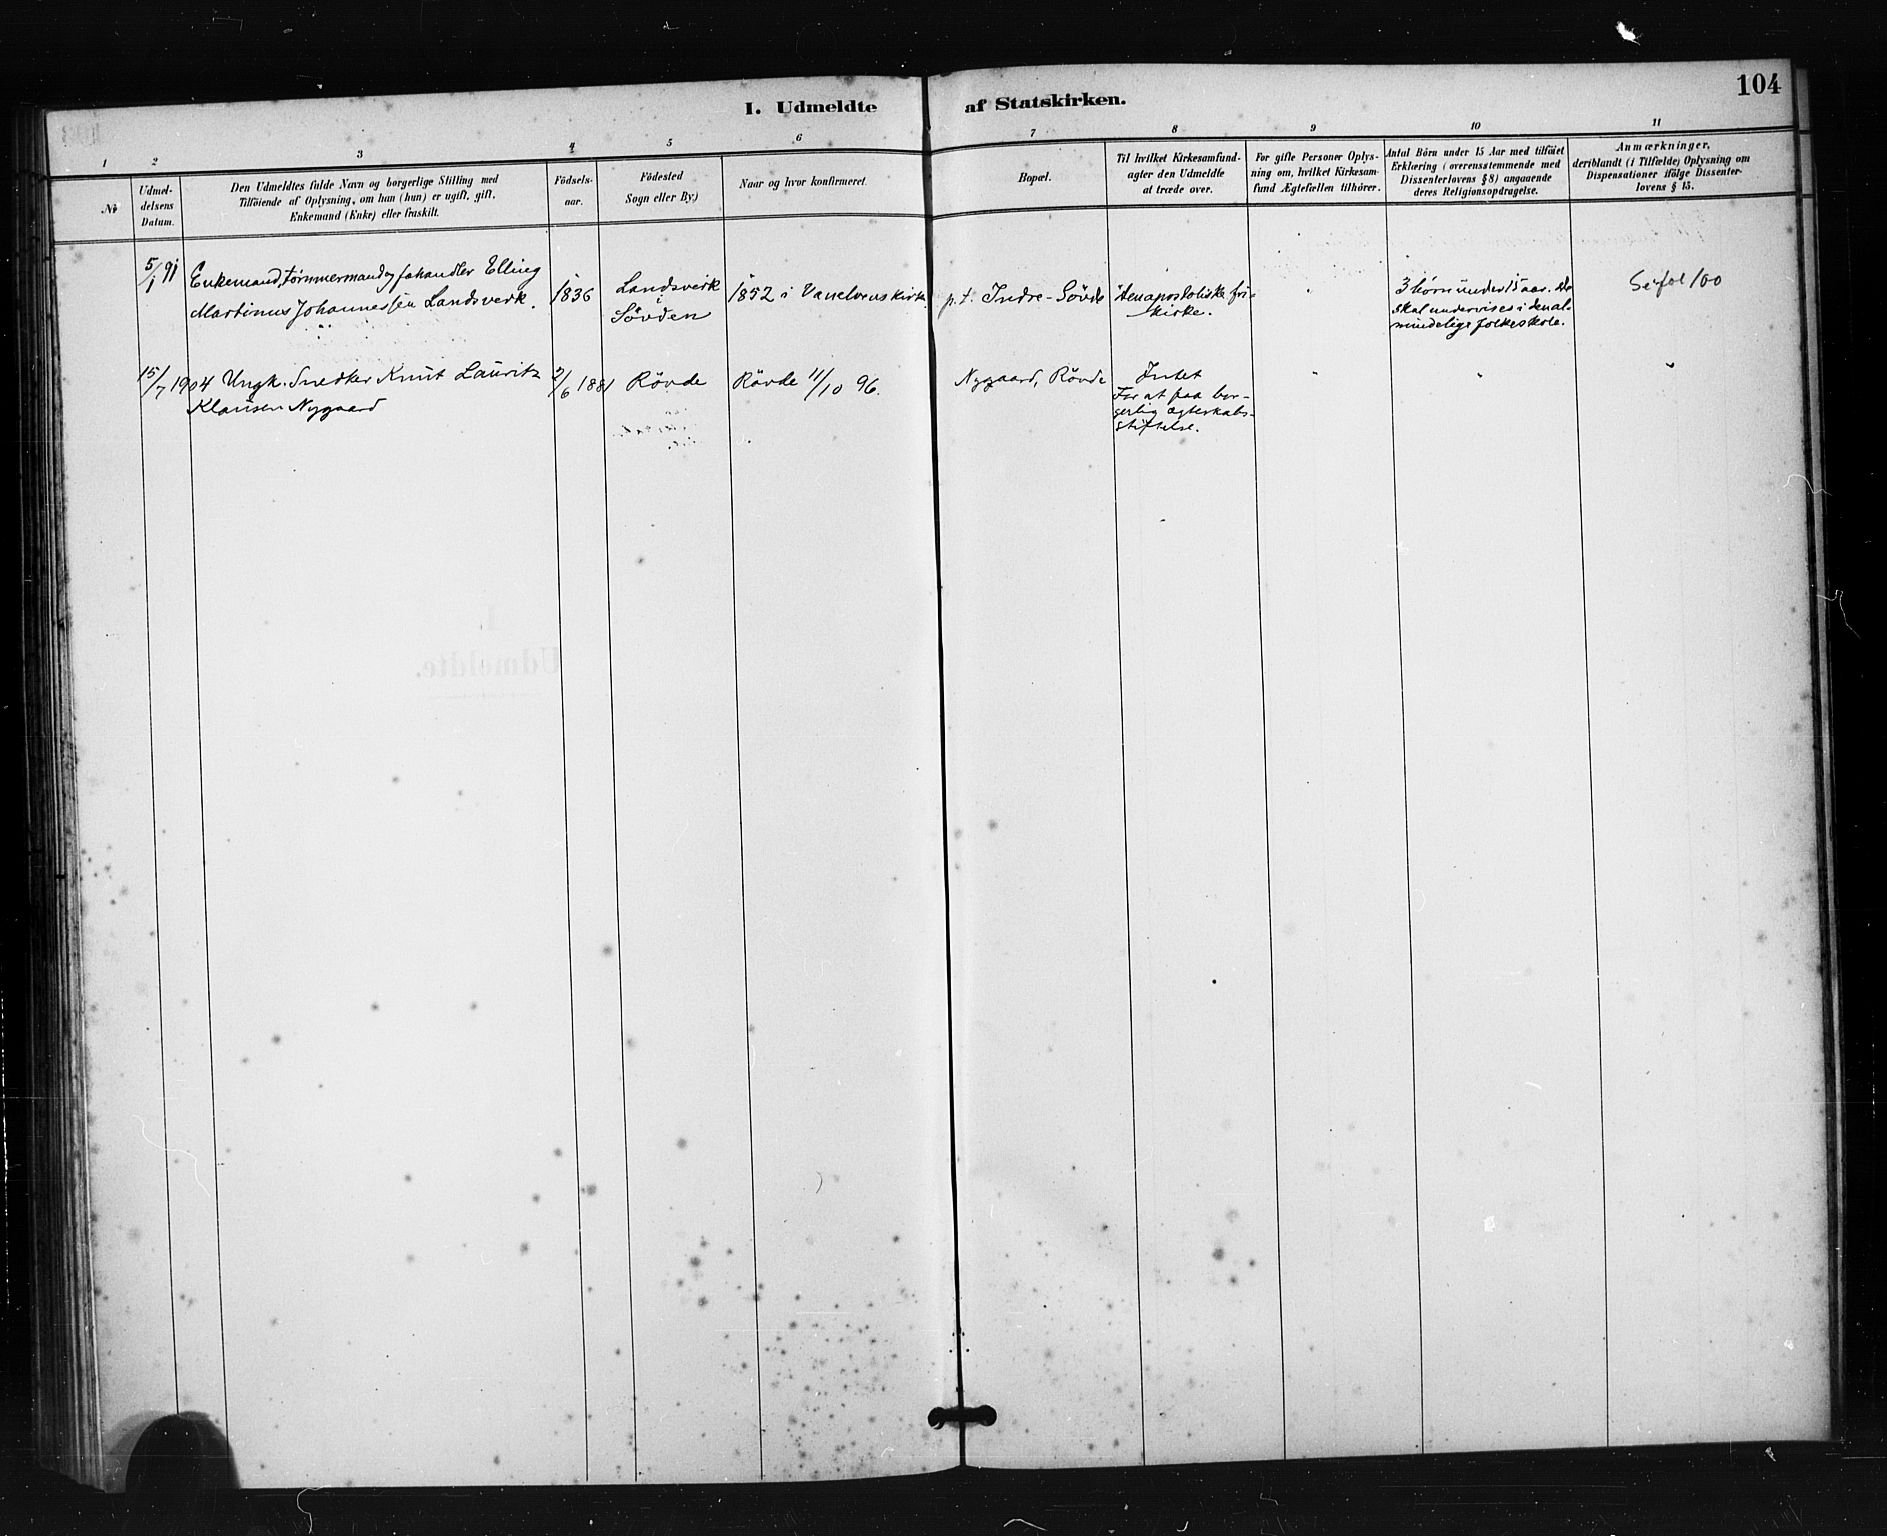 I. Udmeldte af Statskirken.
104
1
2
3
4
5
6
7
8
9
10
11
№
Udmel-
delsens
Datum.
Den Udmeldtes fulde Navn og borgerlige Stilling med
Tilföiende af Oplysning, om han (hun) er ugift, gift,
Enkemand (Enke) eller fraskilt.
Födsels-
aar.
Födested
Sogn eller By.)
Naar og hvor konfirmeret.
Bopæl.
Til hvilket Kirkesamfund-
agter den Udmeldte
at træde over.
For gifte Personer Oplys-
ning om, hvilket Kirkesam-
fund Ægtefællen tilhörer.
Antal Börn under 15 Aar med tilföiet
Erklæring (overensstemmende med
Dissenterlovens § 8) angaaende
deres Religionsopdragelse.
Anmærkninger,
deriblandt (i Tilfælde) Oplysning om
Dispensationer ifölge Dissenter-
lovens § 15.
5/1 91
Enkemand, tömmermand og Elling
Martinus Johannessen Landsverk.
1836
Landsverk
i
Sövden
1852 i Vanelvens kirke
p.t. Indre-Sövde
"Den apostoliske fri-
kirke.
"
3 börn under 15 aar. De
skal undervises i den al-
mindelige folkeskole.
Se fol 100
15/7 1904 Ungk. Snedker Knut Lauritz
Klausen Nygaard
2/6 1881
Rövde
Rövde 11/10 96.
Nygaard, Rövde
Intet
For at faa bor-
gerlig ægteskabs-
stiftelse.
"
"
"